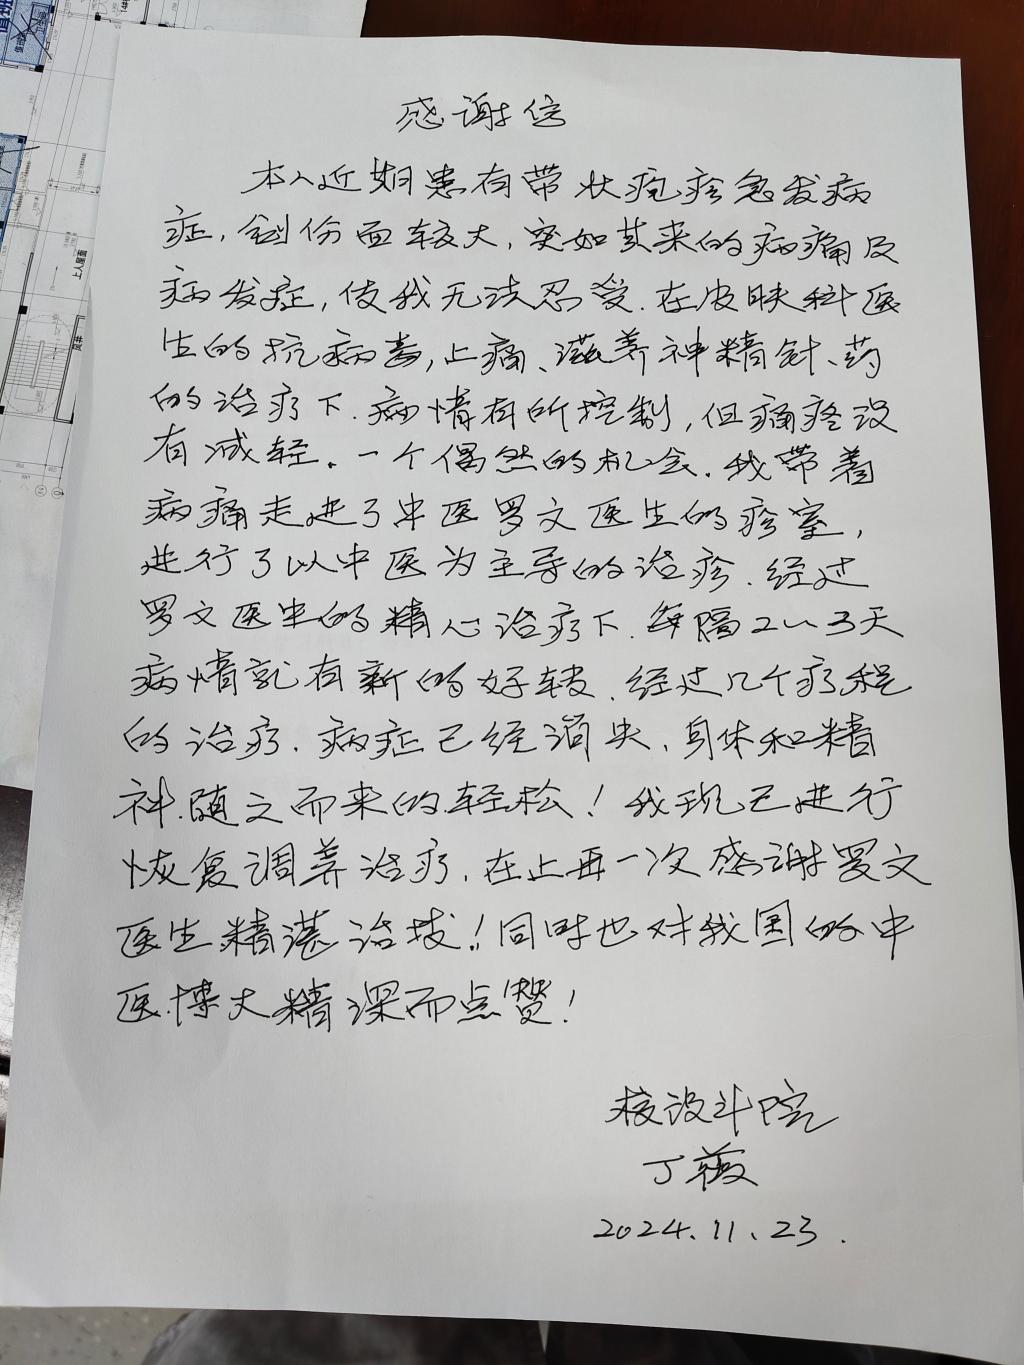 感谢信
本人近期患有带状疱疹急发病
症，创份面较大，突如其来的病痛及
病发症，使我无法忍受.在皮肤科医
生的抗病毒，止痛、滋养神精针、药
的治疗下.病情有所控制，但痛疼没
有减轻。一个偶然的机会.我带着
病痛走进了中医罗文医生的诊室，
进行了以中医为主导的治疹.经过
罗文医生的精心治疗下.每隔2~3天
病情就有新的好转.经过几个疗程
的治疗.病症已经消失、身体和精
神.随之而来的.轻松！我现已进行
恢复调养治疗.在此再一次感谢罗文
医生精湛治拔！同时也对我国的中
医.博大精深而点赞！
核设计院
丁薇
2024.11.23.
上人屋面
风井